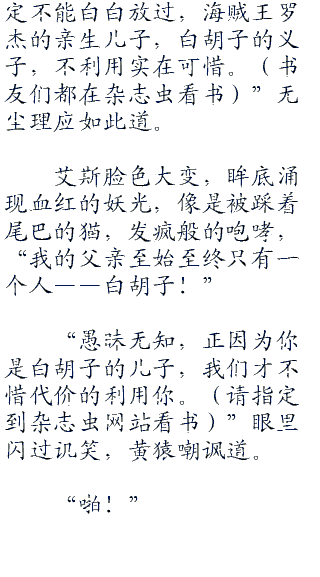 定不能白白放过，海贼王罗
杰的亲生儿子，白胡子的义
子，不利用实在可惜。（书
友们都在杂志虫看书）”无
尘理应如此道。
艾斯脸色大变，眸底涌
现血红的妖光，像是被踩着
尾巴的猫，发疯般的咆哮，
“我的父亲至始至终只有一
个人——白胡子！”
“愚莯无知，正因为你
是白胡子的儿子，我们才不
惜代价的利用你。（请指定
到杂志虫网站看书）”眼里
闪过讥笑，黄猿嘲讽道。
“啪！”